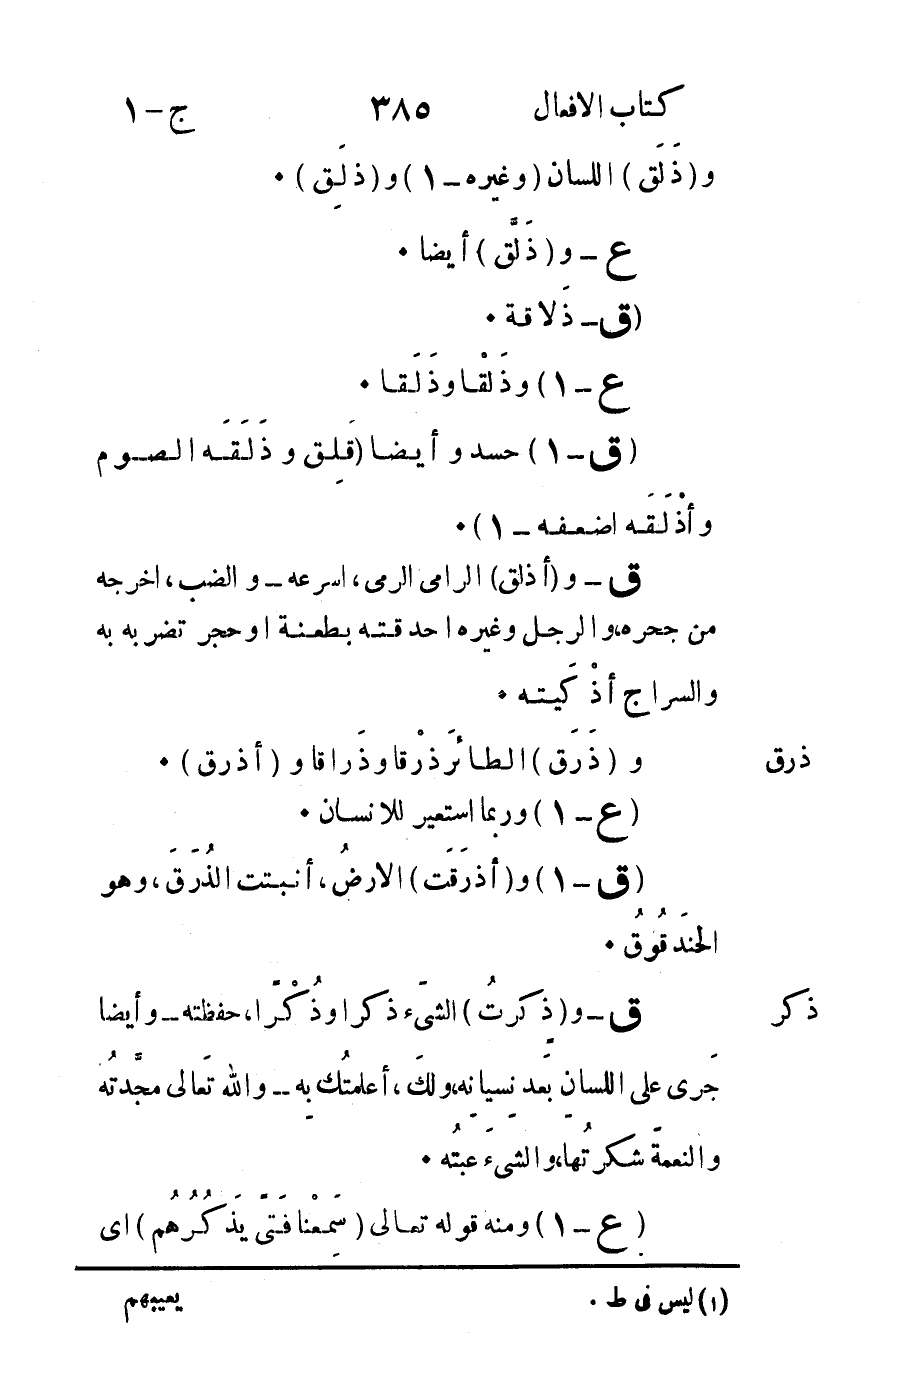 كتاب الافعال ٣٨٥ ج – ١
و (ذَلَق) اللسان (وغيره – ١) و (ذلَِق) .
ع – و (ذَلَّق) أيضا .
(ق – ذَلاقة .
ع – ١) وذَلْقا وذَلَقا .
(ق – ١) حسد و أيضا (قَلِق و ذَلَقَه الصوم
و أذْلَقَه اضعفه – ١) .
ق – و (أذلق) الرامى الرمى، اسرعه – و الضب، اخرجه
من جحره، و الرجل وغيره احدقته بطعنة او حجر تضربه به
والسراج أذْكَيته .
ذرق و (ذَرَق) الطائرُ ذَرْقا وذَراقا و (أذرق) .
(ع – ١) وربما استعير للانسان .
(ق – ١) و (أذرَقَت) الارضُ، أنبتت الذُرَقَ، وهو
الحَندقُوقُ .
ذكر ق – و (ذكرتُ) الشىَء ذِكرا وذُكْرًا، حفظته – و أيضا
جَرى على اللسانِ بَعدَ نِسيانِه، ولكَ، أعلمتُك بِه – والله تَعالى مجَّدتُه
و النعمةَ شكرتُها، و الشىَء عبتُه .
(ع – ١) ومنه قوله تعالى (سَمِعْنا فَتًى يَذكُرُهُم) اى
(١) ليس فى ط . يعيبهم